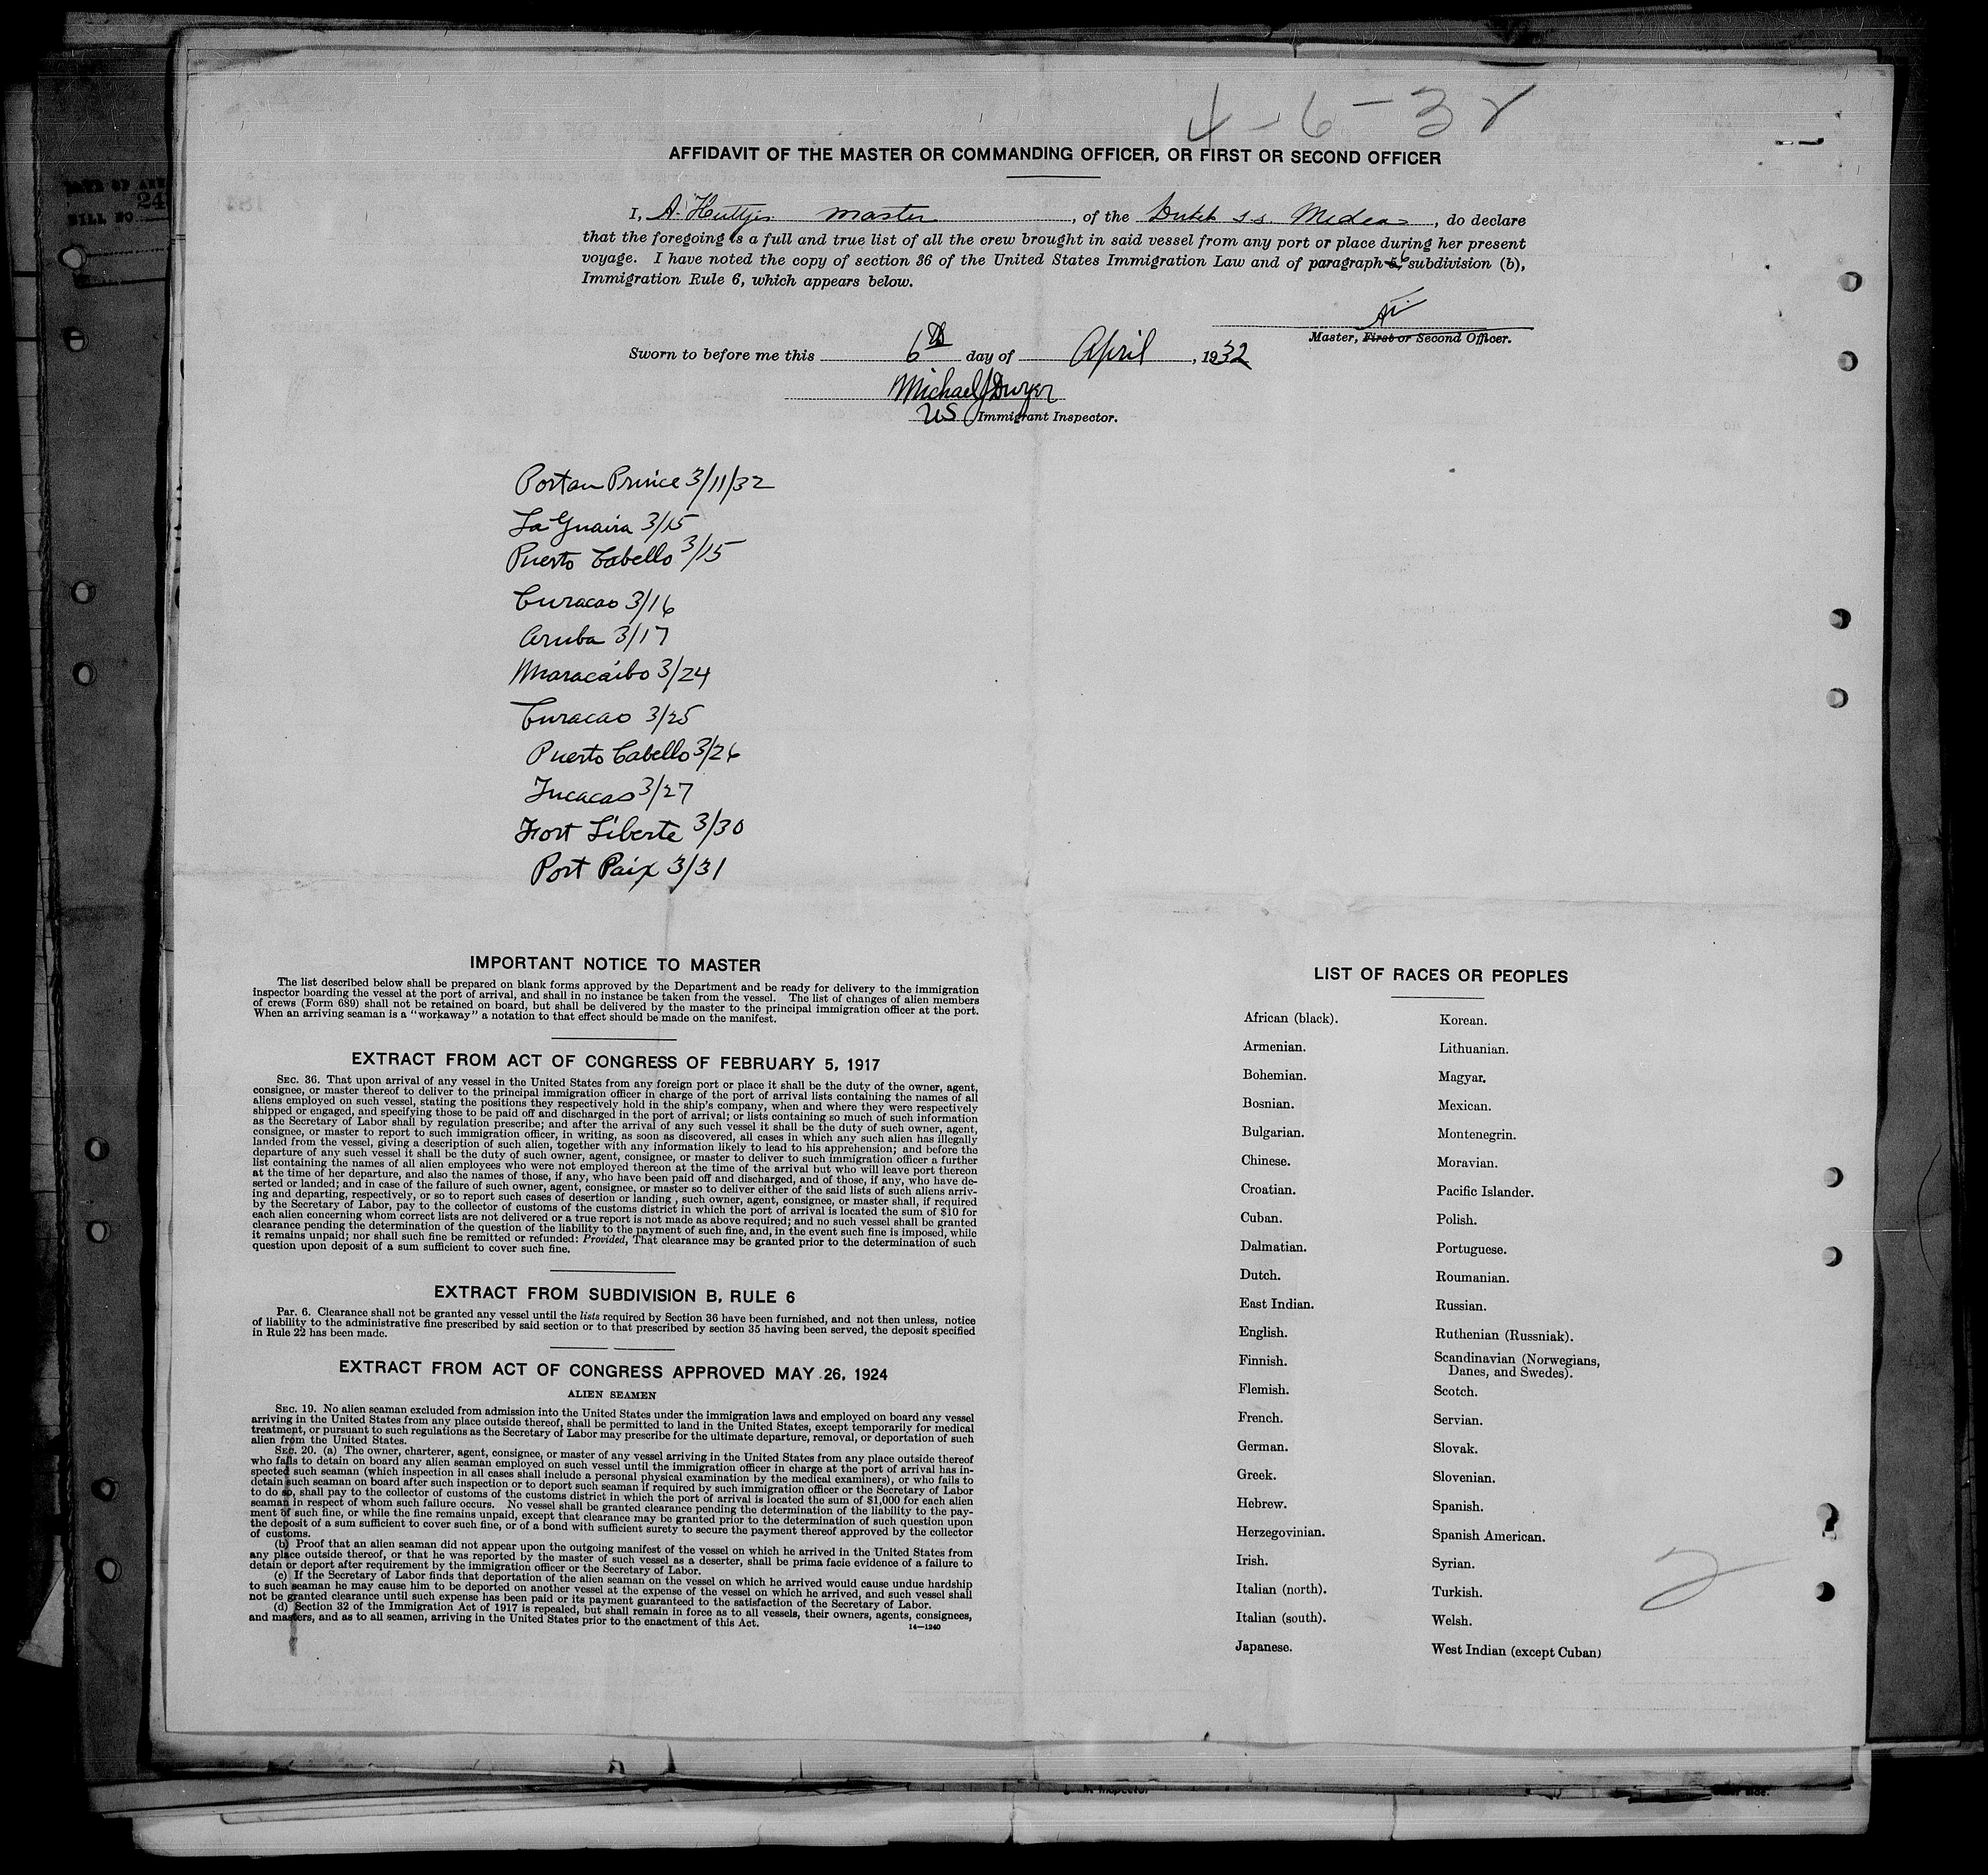 4-6-32
AFFIDAVIT OF THE MASTER OR COMMANDING OFFICER, OR FIRST OR SECOND OFFICER
I, A. master, of the Dutch s.s. Medea, do declare
that the foregoing is a full and true list of all the crew brought in said vessel from any port or place during her present
voyage. I have noted the copy of section 36 of the United States Immigration Law and of paragraph 5, 6 subdivision (b),
Immigration Rule 6, which appears below.
Master, First or Second Officer.
Sworn to before me this 6th day of April, 1932
Michael J Dwyer
US Immigrant Inspector.
Port au Prince 3/11/32
La Guaira 3/15
Puerto Cabello 3/15
Curacao 3/16
Aruba 3/17
Maracaibo 3/24
Curacao 3/25
Puerto Cabello 3/26
Tucacas 3/27
Fort Liberte 3/30
Port Paix 3/31
IMPORTANT NOTICE TO MASTER
The list described below shall be prepared on blank forms approved by the Department and be ready for delivery to the immigration
inspector boarding the vessel at the port of arrival, and shall in no instance be taken from the vessel. The list of changes of alien members
of crews (Form 689) shall not be retained on board, but shall be delivered by the master to the principal immigration officer at the port.
When an arriving seaman is a "workaway" a notation to that effect should be made on the manifest.
EXTRACT FROM ACT OF CONGRESS OF FEBRUARY 5, 1917
SEC. 36. That upon arrival of any vessel in the United States from any foreign port or place it shall be the duty of the owner, agent,
consignee, or master thereof to deliver to the principal immigration officer in charge of the port of arrival lists containing the names of all
aliens employed on such vessel, stating the positions they respectively hold in the ship's company, when and where they were respectively
shipped or engaged, and specifying those to be paid off and discharged in the port of arrival; or lists containing so much of such information
as the Secretary of Labor shall by regulation prescribe; and after the arrival of any such vessel it shall be the duty of such owner, agent,
consignee, or master to report to such immigration officer, in writing, as soon as discovered, all cases in which any such alien has illegally
landed from the vessel, giving a description of such alien, together with any information likely to lead to his apprehension; and before the
departure of any such vessel it shall be the duty of such owner, agent, consignee, or master to deliver to such immigration officer a further
list containing the names of all alien employees who were not employed thereon at the time of the arrival but who will leave port thereon
at the time of her departure, and also the names of those, if any, who have been paid off and discharged, and of those, if any, who have de-
serted or landed; and in case of the failure of such owner, agent, consignee, or master so to deliver either of the said lists of such aliens arriv-
ing and departing, respectively, or so to report such cases of desertion or landing, such owner, agent, consignee, or master shall, if required
by the Secretary of Labor, pay to the collector of customs of the customs district in which the port of arrival is located the sum of $10 for
each alien concerning whom correct lists are not delivered or a true report is not made as above required; and no such vessel shall be granted
clearance pending the determination of the question of the liability to the payment of such fine, and, in the event such fine is imposed, while
it remains unpaid; nor shall such fine be remitted or refunded: Provided, That clearance may be granted prior to the determination of such
question upon deposit of a sum sufficient to cover such fine.
EXTRACT FROM SUBDIVISION B, RULE 6
Par. 6. Clearance shall not be granted any vessel until the lists required by Section 36 have been furnished, and not then unless, notice
of liability to the administrative fine prescribed by said section or to that prescribed by section 35 having been served, the deposit specified
in Rule 22 has been made.
EXTRACT FROM ACT OF CONGRESS APPROVED MAY 26, 1924
ALIEN SEAMEN
SEC. 19. No alien seaman excluded from admission into the United States under the immigration laws and employed on board any vessel
arriving in the United States from any place outside thereof, shall be permitted to land in the United States, except temporarily for medical
treatment, or pursuant to such regulations as the Secretary of Labor may prescribe for the ultimate departure, removal, or deportation of such
alien from the United States.
SEC. 20. (a) The owner, charterer, agent, consignee, or master of any vessel arriving in the United States from any place outside thereof
who fails to detain on board any alien seaman employed on such vessel until the immigration officer in charge at the port of arrival has in-
spected such seaman (which inspection in all cases shall include a personal physical examination by the medical examiners), or who fails to
detain such seaman on board after such inspection or to deport such seaman if required by such immigration officer or the Secretary of Labor
to do so, shall pay to the collector of customs of the customs district in which the port of arrival is located the sum of $1,000 for each alien
seaman in respect of whom such failure occurs. No vessel shall be granted clearance pending the determination of the liability to the pay-
ment of such fine, or while the fine remains unpaid, except that clearance may be granted prior to the determination of such question upon
the deposit of a sum sufficient to cover such fine, or of a bond with sufficient surety to secure the payment thereof approved by the collector
of customs.
(b) Proof that an alien seaman did not appear upon the outgoing manifest of the vessel on which he arrived in the United States from
any place outside thereof, or that he was reported by the master of such vessel as a deserter, shall be prima facie evidence of a failure to
detain or deport after requirement by the immigration officer or the Secretary of Labor.
(c) If the Secretary of Labor finds that deportation of the alien seaman on the vessel on which he arrived would cause undue hardship
to such seaman he may cause him to be deported on another vessel at the expense of the vessel on which he arrived, and such vessel shall
not be granted clearance until such expense has been paid or its payment guaranteed to the satisfaction of the Secretary of Labor.
(d) Section 32 of the Immigration Act of 1917 is repealed, but shall remain in force as to all vessels, their owners, agents, consignees,
and masters, and as to all seamen, arriving in the United States prior to the enactment of this Act.
14—1240
LIST OF RACES OR PEOPLES
African (black). Korean.
Armenian. Lithuanian.
Bohemian. Magyar.
Bosnian. Mexican.
Bulgarian. Montenegrin.
Chinese. Moravian.
Croatian. Pacific Islander.
Cuban. Polish.
Dalmatian. Portuguese.
Dutch. Roumanian.
East Indian. Russian.
English. Ruthenian (Russniak).
Finnish. Scandinavian (Norwegians,
Danes, and Swedes).
Flemish. Scotch.
French. Servian.
German. Slovak.
Greek. Slovenian.
Hebrew. Spanish.
Herzegovinian. Spanish American.
Irish. Syrian.
Italian (north). Turkish.
Italian (south). Welsh.
Japanese. West Indian (except Cuban)
2